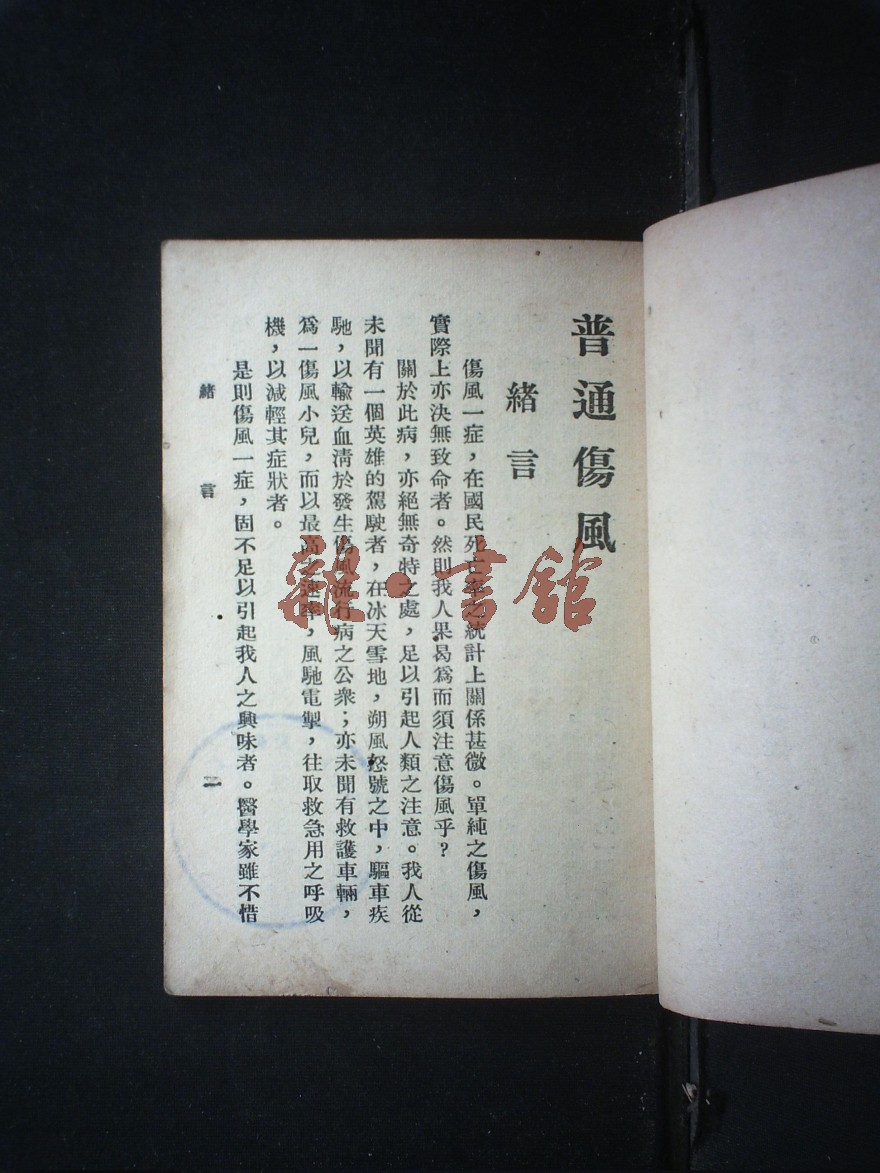 普通傷風
緒言
傷風一症，在國民死亡率之統計上關係甚微。單純之傷風，
實際上亦決無致命者。然則我人果曷爲而須注意傷風乎？
關於此病，亦絕無奇特之處，足以引起人類之注意。我人從
未聞有一個英雄的駕駛者，在冰天雪地，朔風怒號之中，驅車疾
馳，以輸送血淸於發生傷風流行病之公衆；亦未聞有救護車輛，
爲一傷風小兒，而以最高之速率，風馳電掣，往取救急用之呼吸
機，以減輕其症狀者。
是則傷風一症，固不足以引起我人之興味者。醫學家雖不惜
緒言 一
雜·書館